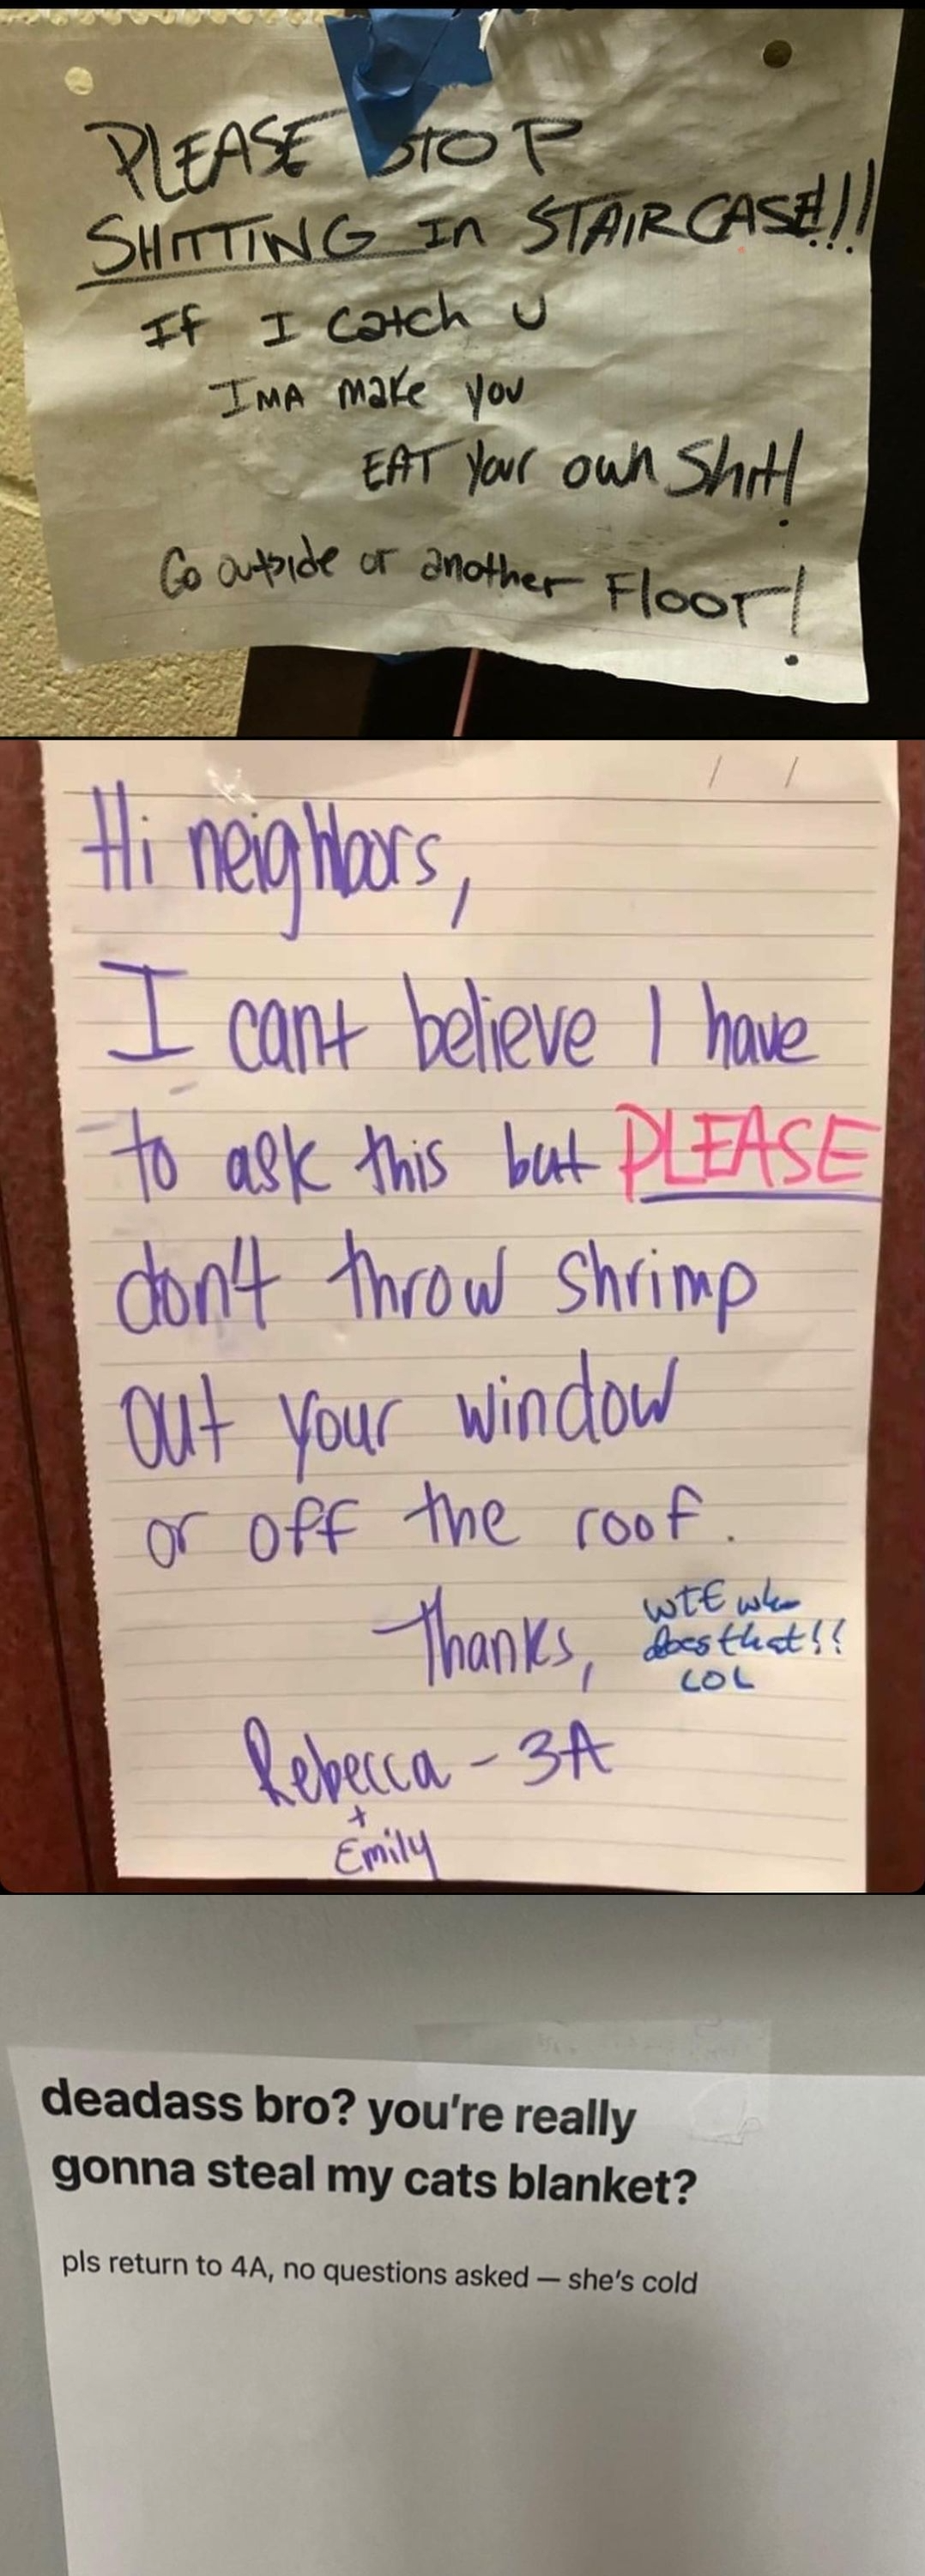 PLEASE STOP
SHITTING In STAIRCASE!!!
If I catch U
IMA make you
EAT your own Shit!
Go outside or another Floor!
Hi neighbors,
I cant believe I have
to ask this but PLEASE
don't throw shrimp
out your window
or off the roof.
Thanks,
WTF who
does that!!
LOL
Rebecca - 3A
+
Emily
deadass bro? you're really
gonna steal my cats blanket?
pls return to 4A, no questions asked — she's cold